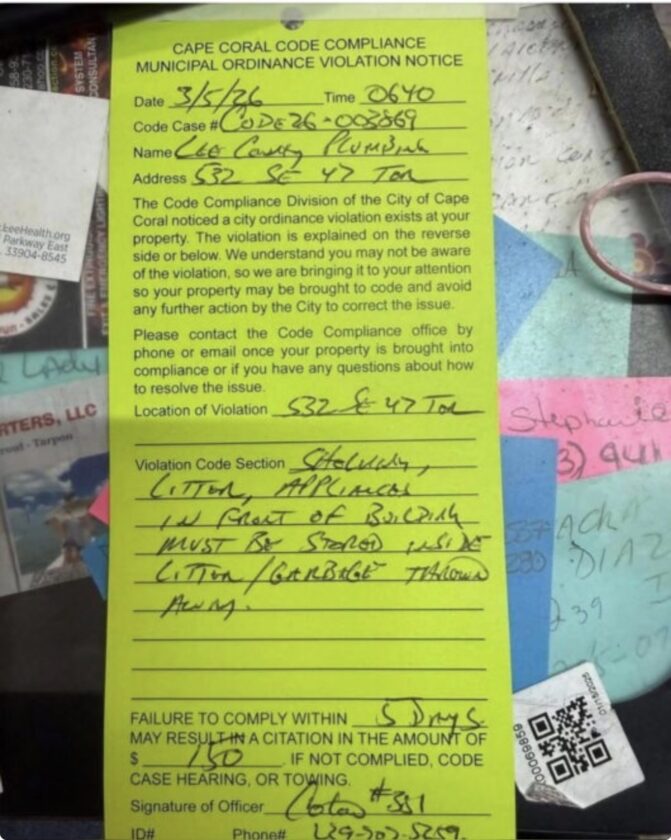 CAPE CORAL CODE COMPLIANCE
MUNICIPAL ORDINANCE VIOLATION NOTICE
Date 3/5/26 Time 0640
Code Case # CODE26-003869
Name LEE COUNTY PLUMBING
Address 532 SE 47 TER
The Code Compliance Division of the City of Cape
Coral noticed a city ordinance violation exists at your
property. The violation is explained on the reverse
side or below. We understand you may not be aware
of the violation, so we are bringing it to your attention
so your property may be brought to code and avoid
any further action by the City to correct the issue.
Please contact the Code Compliance office by
phone or email once your property is brought into
compliance or if you have any questions about how
to resolve the issue.
Location of Violation 532 SE 47 TER
Violation Code Section SHELVING,
LITTER, APPLIANCES
IN FRONT OF BUILDING
MUST BE STORED INSIDE
LITTER/GARBAGE THROWN
AWAY.
FAILURE TO COMPLY WITHIN 5 DAYS
MAY RESULT IN A CITATION IN THE AMOUNT OF
$ 150 . IF NOT COMPLIED, CODE
CASE HEARING, OR TOWING.
Signature of Officer #351
ID# Phone#
SYSTEM
CONSULTANT
LeeHealth.org
Parkway East
33904-8545
LADY
RTERS, LLC
Tarpon
Stephanie
3) 941
DIAZ
239
01/15/2025
00069859